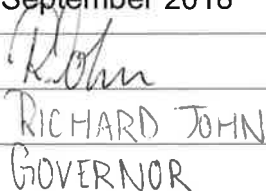 September 2018
RJohn
RICHARD JOHN
GOVERNOR